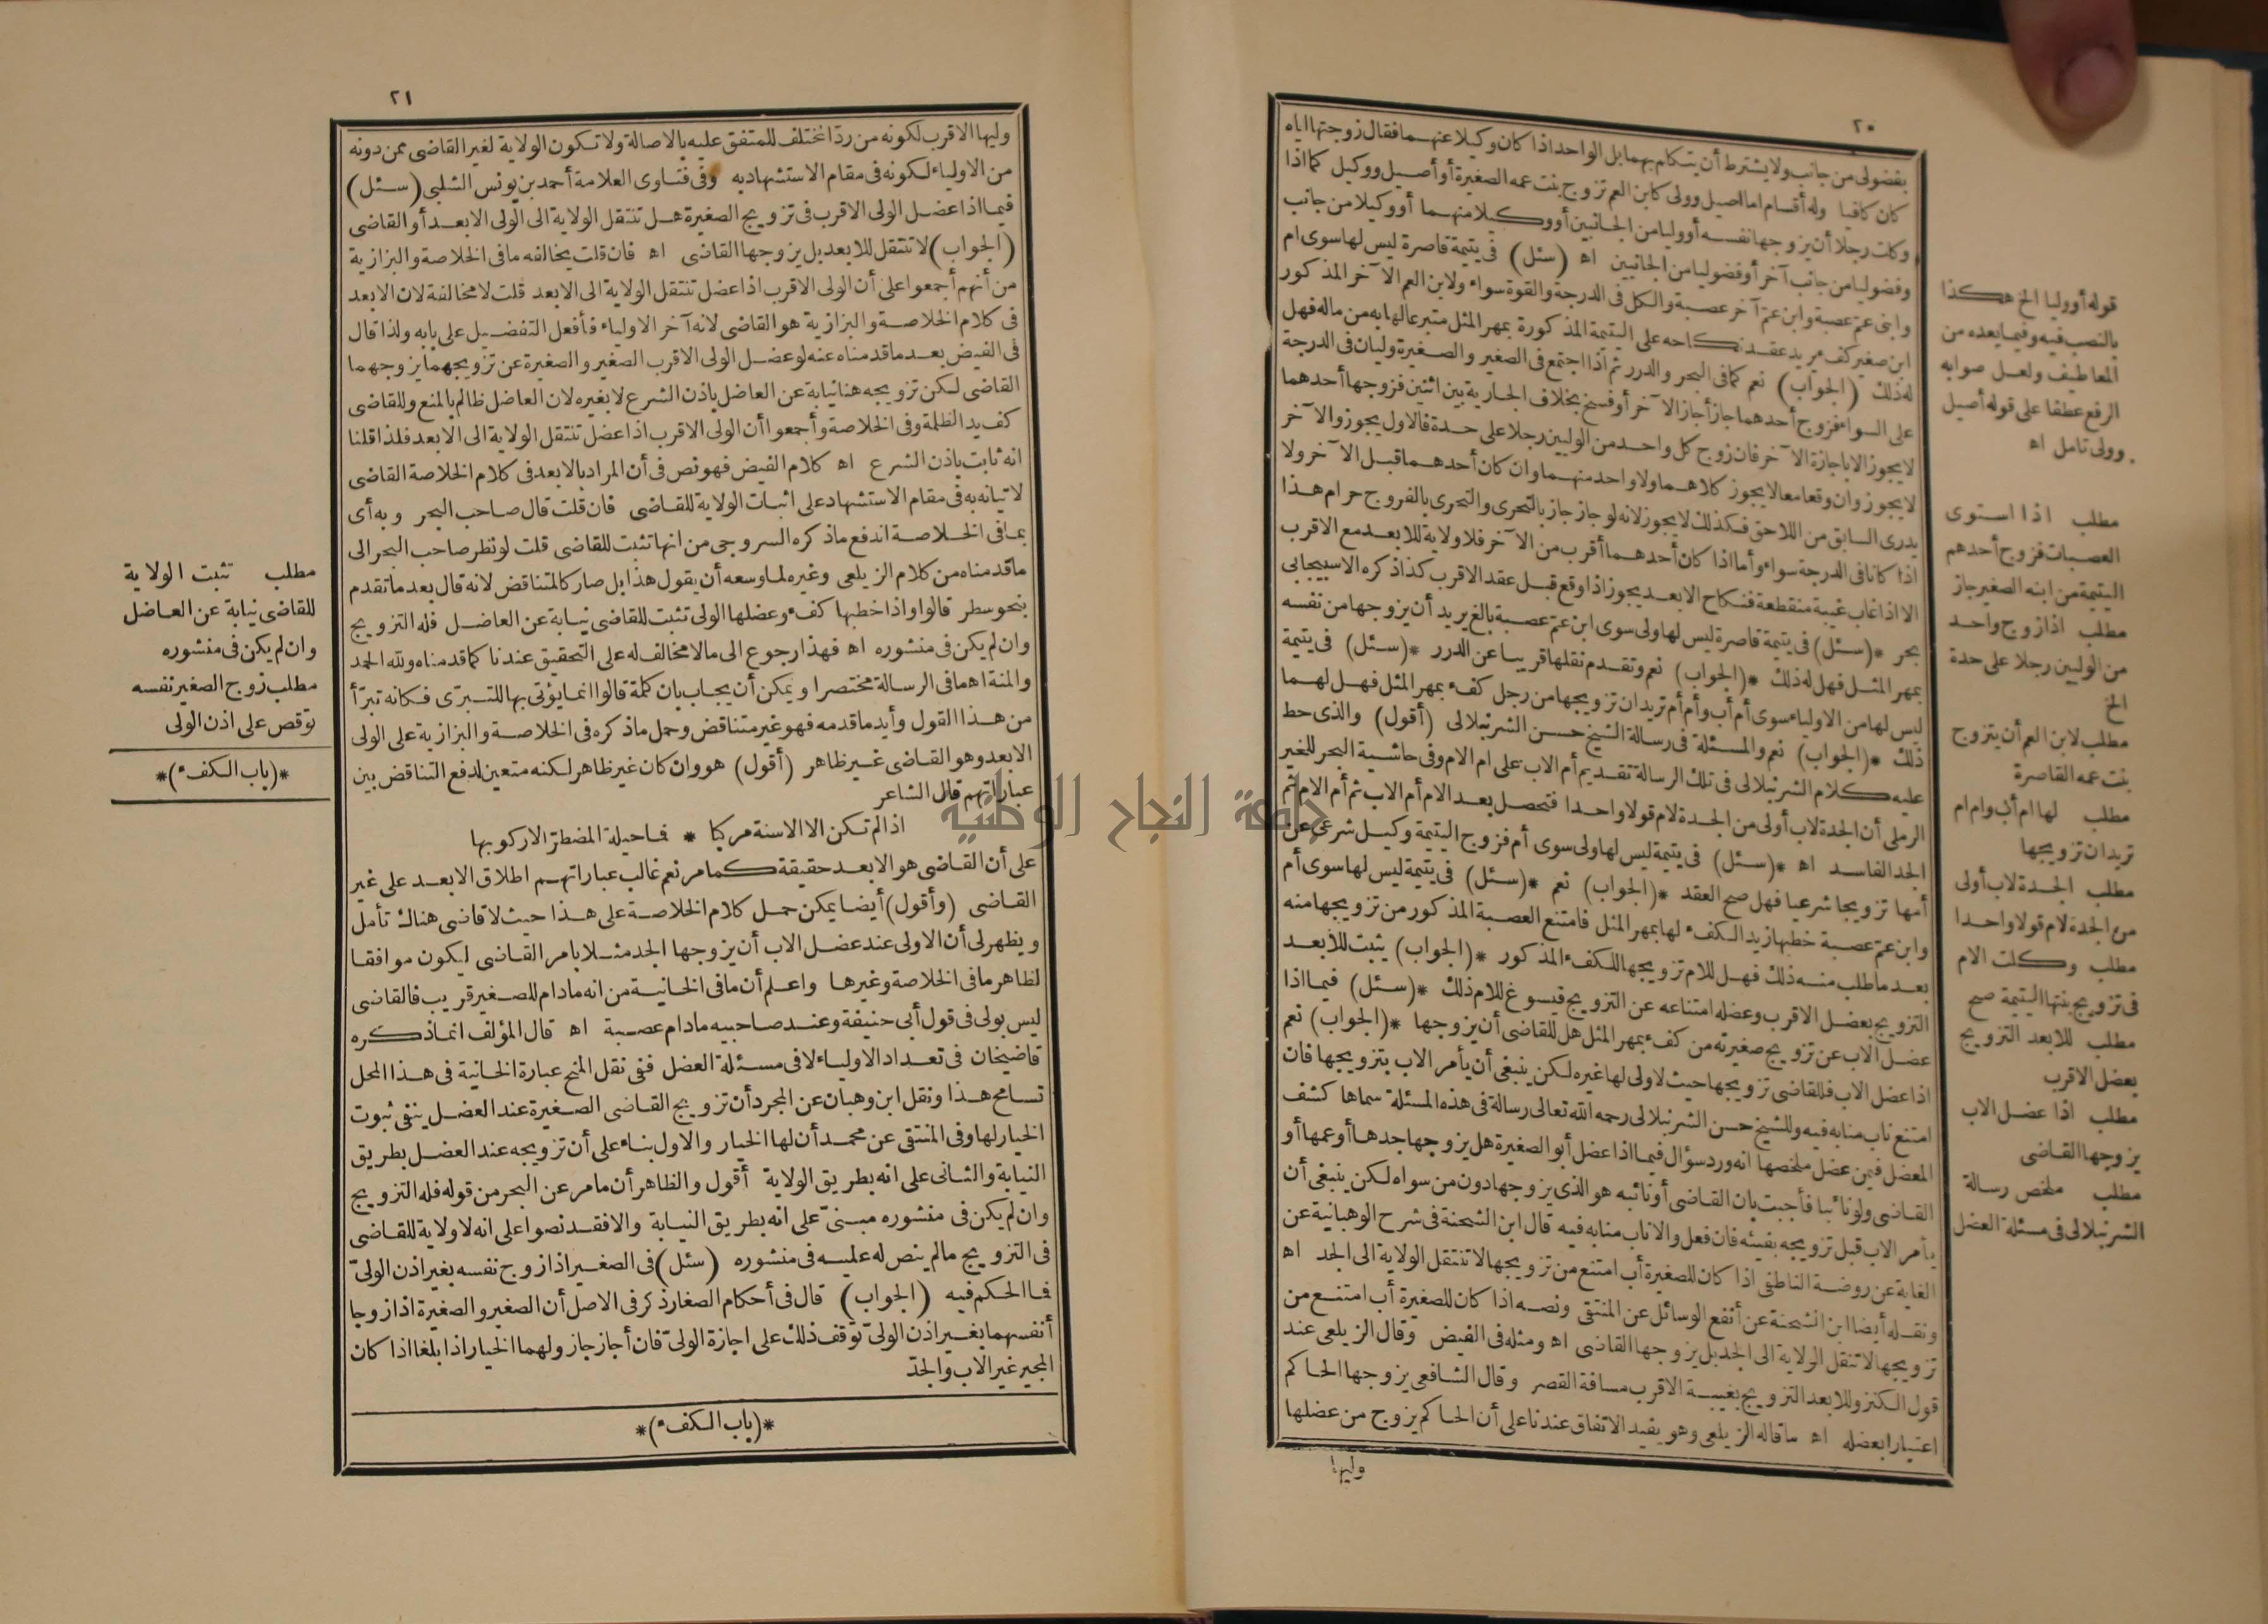 ٢٠
بفضولى من جانب ولا يشترط أن يتكلم بهما بل الواحد اذا كان وكيلا عنهما فقال زوجتها اياه
كان كافيا وله أقسام اما أصيل وولى كابن العم تزوج بنت عمه الصغيرة أو أصيل ووكيل كما اذا
وكلت رجلا أن يزوجها نفسه أو وليا من الجانبين أو وكيلا منهما أو وكيلا من جانب
وفضوليا من جانب آخر أو فضوليا من الجانبين اه (سئل) فى يتيمة قاصرة ليس لها سوى ام
وابنى عم عصبة وابن عم آخر عصبة والكل فى الدرجة والقوة سواء ولابن العم الآخر المذكور
ابن صغير كفء يريد عقد نكاحه على اليتيمة المذكورة بمهر المثل متبرعا لها به من ماله فهل
له ذلك (الجواب) نعم كما فى البحر والدرر ثم اذا اجتمع فى الصغير والصغيرة وليان فى الدرجة
على السواء فزوج أحدهما جاز أجاز الآخر أو فسخ بخلاف الجارية بين اثنين فزوجها أحدهما
لا يجوز الا باجازة الآخر فان زوج كل واحد من الوليين رجلا على حدة فالاول يجوز والآخر
لا يجوز وان وقعا معا لا يجوز كلاهما ولا واحد منهما وان كان أحدهما قبل الآخر ولا
يدرى السابق من اللاحق فكذلك لا يجوز لانه لو جاز جاز بالتحرى والتحرى بالفروج حرام هذا
اذا كانا فى الدرجة سواء وأما اذا كان أحدهما أقرب من الآخر فلا ولاية للابعد مع الاقرب
الا اذا غاب غيبة منقطعة فنكاح الابعد يجوز اذا وقع قبل عقد الاقرب كذا ذكره الاسبيجابى
بحر *(سئل) فى يتيمة قاصرة ليس لها ولى سوى ابن عم عصبة بالغ يريد أن يزوجها من نفسه
بمهر المثل فهل له ذلك *(الجواب) نعم وتقدم نقلها قريبا عن الدرر *(سئل) فى يتيمة
ليس لها من الاولياء سوى أم أب وأم أم تريد ان تزويجها من رجل كفء بمهر المثل فهل لهما
ذلك *(الجواب) نعم والمسئلة فى رسالة الشيخ حسن الشرنبلالى (أقول) والذى حط
عليه كلام الشرنبلالى فى تلك الرسالة تقديم أم الاب على ام الام وفى حاشية البحر للخير
الرملى أن الجدة لاب أولى من الجدة لام قولا واحدا فتحصل بعد الام أم الاب ثم أم الام ثم
الجد الفاسد اه *(سئل) فى يتيمة ليس لها ولى سوى أم فزوج اليتيمة وكيل شرعى عن
أمها تزويجا شرعيا فهل صح العقد *(الجواب) نعم *(سئل) فى يتيمة ليس لها سوى أم
وابن عم عصبة خطبها زيد الكفء لها بمهر المثل فامتنع العصبة المذكور من تزويجها منه
بعد ما طلب منه ذلك فهل للام تزويجها للكفء المذكور *(الجواب) يثبت للأبعد
التزويج بعضل الاقرب وعضله امتناعه عن التزويج فيسوغ للام ذلك *(سئل) فيما اذا
عضل الاب عن تزويج صغيرته من كفء بمهر المثل هل للقاضى أن يزوجها *(الجواب) نعم
اذا عضل الاب فللقاضى تزويجها حيث لا ولى لها غيره لكن ينبغى أن يأمر الاب بتزويجها فان
امتنع ناب منابه فيه وللشيخ حسن الشرنبلالى رحمه الله تعالى رسالة فى هذه المسئلة سماها كشف
المعضل فيمن عضل ملخصها انه ورد سؤال فيما اذا عضل أبو الصغيرة هل يزوجها جدها أو عمها أو
القاضى ولو نائبا فأجبت بان القاضى أو نائبه هو الذى يزوجها دون من سواه لكن ينبغى أن
يأمر الاب قبل تزويجه بفيئه فان فعل والا ناب منابه فيه قال ابن الشحنة فى شرح الوهبانية عن
الغاية عن روضة الناطفى اذا كان للصغيرة أب امتنع من تزويجها لا تنتقل الولاية الى الجد اه
ونقله أيضا ابن الشحنة عن أنفع الوسائل عن المنتقى ونصه اذا كان للصغيرة أب امتنع من
تزويجها لا تنقل الولاية الى الجد بل يزوجها القاضى اه ومثله فى الفيض وقال الزيلعى عند
قول الكنز وللابعد التزويج بغيبة الاقرب مسافة القصر وقال الشافعى يزوجها الحاكم
اعتبارا بعضله اه ما قاله الزيلعى وهو يفيد الاتفاق عندنا على أن الحاكم يزوج من عضلها
وليها
قوله أو وليا الخ هكذا
بالنصب فيه وفيما بعده من
المعاطيف ولعل صوابه
الرفع عطفا على قوله أصيل
وولى تامل اه
مطلب اذا استوى
العصبات فزوج أحدهم
اليتيمة من ابنه الصغير جاز
مطلب اذا زوج واحد
من الوليين رجلا على حدة
الخ
مطلب لابن العم أن يتزوج
بنت عمه القاصرة
مطلب لها ام أب وام ام
تريد ان تزويجها
مطلب الجدة لاب أولى
من الجدة لام قولا واحدا
مطلب وكلت الام
فى تزويج بنتها اليتيمة صح
مطلب للابعد التزويج
بعضل الاقرب
مطلب اذا عضل الاب
يزوجها القاضى
مطلب ملخص رسالة
الشرنبلالى فى مسئلة العضل
٢١
وليها الاقرب لكونه من ردّ المختلف للمتفق عليه بالاصالة ولا تكون الولاية لغير القاضى ممن دونه
من الاولياء لكونه فى مقام الاستشهاد به وفى فتاوى العلامة أحمد بن يونس الشلبى (سئل)
فيما اذا عضل الولى الاقرب فى تزويج الصغيرة هل تنتقل الولاية الى الولى الابعد أو القاضى
(الجواب) لا تنتقل للابعد بل يزوجها القاضى اه فان قلت يخالفه ما فى الخلاصة والبزازية
من أنهم أجمعوا على أن الولى الاقرب اذا عضل تنتقل الولاية الى الابعد قلت لا مخالفة لان الابعد
فى كلام الخلاصة والبزازية هو القاضى لانه آخر الاولياء فأفعل التفضيل على بابه ولذا قال
فى الفيض بعد ما قدمناه عنه لو عضل الولى الاقرب الصغير والصغيرة عن تزويجهما يزوجهما
القاضى لكن تزويجه هنا نيابة عن العاضل باذن الشرع لا بغيره لان العاضل ظالم بالمنع وللقاضى
كف يد الظلمة وفى الخلاصة وأجمعوا أن الولى الاقرب اذا عضل تنتقل الولاية الى الابعد فلذا قلنا
انه ثابت باذن الشرع اه كلام الفيض فهو نص فى أن المراد بالابعد فى كلام الخلاصة القاضى
لاتيانه به فى مقام الاستشهاد على اثبات الولاية للقاضى فان قلت قال صاحب البحر وبه أى
بما فى الخلاصة اندفع ما ذكره السروجى من انها تثبت للقاضى قلت لو نظر صاحب البحر الى
ما قدمناه من كلام الزيلعى وغيره لما وسعه أن يقول هذا بل صار كالمتناقض لانه قال بعد ما تقدم
بنحو سطر قالوا واذا خطبها كفء وعضلها الولى تثبت للقاضى نيابة عن العاضل فله التزويج
وان لم يكن فى منشوره اه فهذا رجوع الى مالا مخالف له على التحقيق عندنا كما قدمناه ولله الحمد
والمنة اه ما فى الرسالة مختصرا ويمكن أن يجاب بان كلمة قالوا انما يؤتى بها للتبرّى فكانه تبرّأ
من هذا القول وأيد ما قدمه فهو غير متناقض وحمل ما ذكره فى الخلاصة والبزازية على الولى
الابعد وهو القاضى غير ظاهر (أقول) هو وان كان غير ظاهر لكنه متعين لدفع التناقض بين
عباراتهم قال الشاعر
اذا لم تكن الا الاسنة مركبا * فما حيلة المضطرّ الا ركوبها
على أن القاضى هو الابعد حقيقة كما مر نعم غالب عباراتهم اطلاق الابعد على غير
القاضى (وأقول) أيضا يمكن حمل كلام الخلاصة على هذا حيث لا قاضى هناك تأمل
ويظهر لى أن الاولى عند عضل الاب أن يزوجها الجد مثلا بامر القاضى ليكون موافقا
لظاهر ما فى الخلاصة وغيرها واعلم أن ما فى الخانية من انه مادام للصغير قريب فالقاضى
ليس بولى فى قول أبى حنيفة وعند صاحبيه مادام عصبة اه قال المؤلف انما ذكره
قاضيخان فى تعداد الاولياء لا فى مسئلة العضل ففى نقل المنح عبارة الخانية فى هذا المحل
تسامح هذا ونقل ابن وهبان عن المجرد أن تزويج القاضى الصغيرة عند العضل ينفى ثبوت
الخيار لها وفى المنتقى عن محمد أن لها الخيار والاول بناء على أن تزويجه عند العضل بطريق
النيابة والثانى على انه بطريق الولاية أقول والظاهر أن ما مر عن البحر من قوله فله التزويج
وان لم يكن فى منشوره مبنىّ على انه بطريق النيابة والا فقد نصوا على انه لا ولاية للقاضى
فى التزويج مالم ينص له عليه فى منشوره (سئل) فى الصغير اذا زوج نفسه بغير اذن الولىّ
فما الحكم فيه (الجواب) قال فى أحكام الصغار ذكر فى الاصل أن الصغير والصغيرة اذا زوجا
أنفسهما بغير اذن الولىّ توقف ذلك على اجازة الولىّ فان أجاز جاز ولهما الخيار اذا بلغا اذا كان
المجيز غير الاب والجدّ
*(باب الكفء)*
مطلب تثبت الولاية
للقاضى نيابة عن العاضل
وان لم يكن فى منشوره
مطلب زوج الصغير نفسه
توقف على اذن الولى
*(باب الكفء)*
جامعة النجاح الوطنية